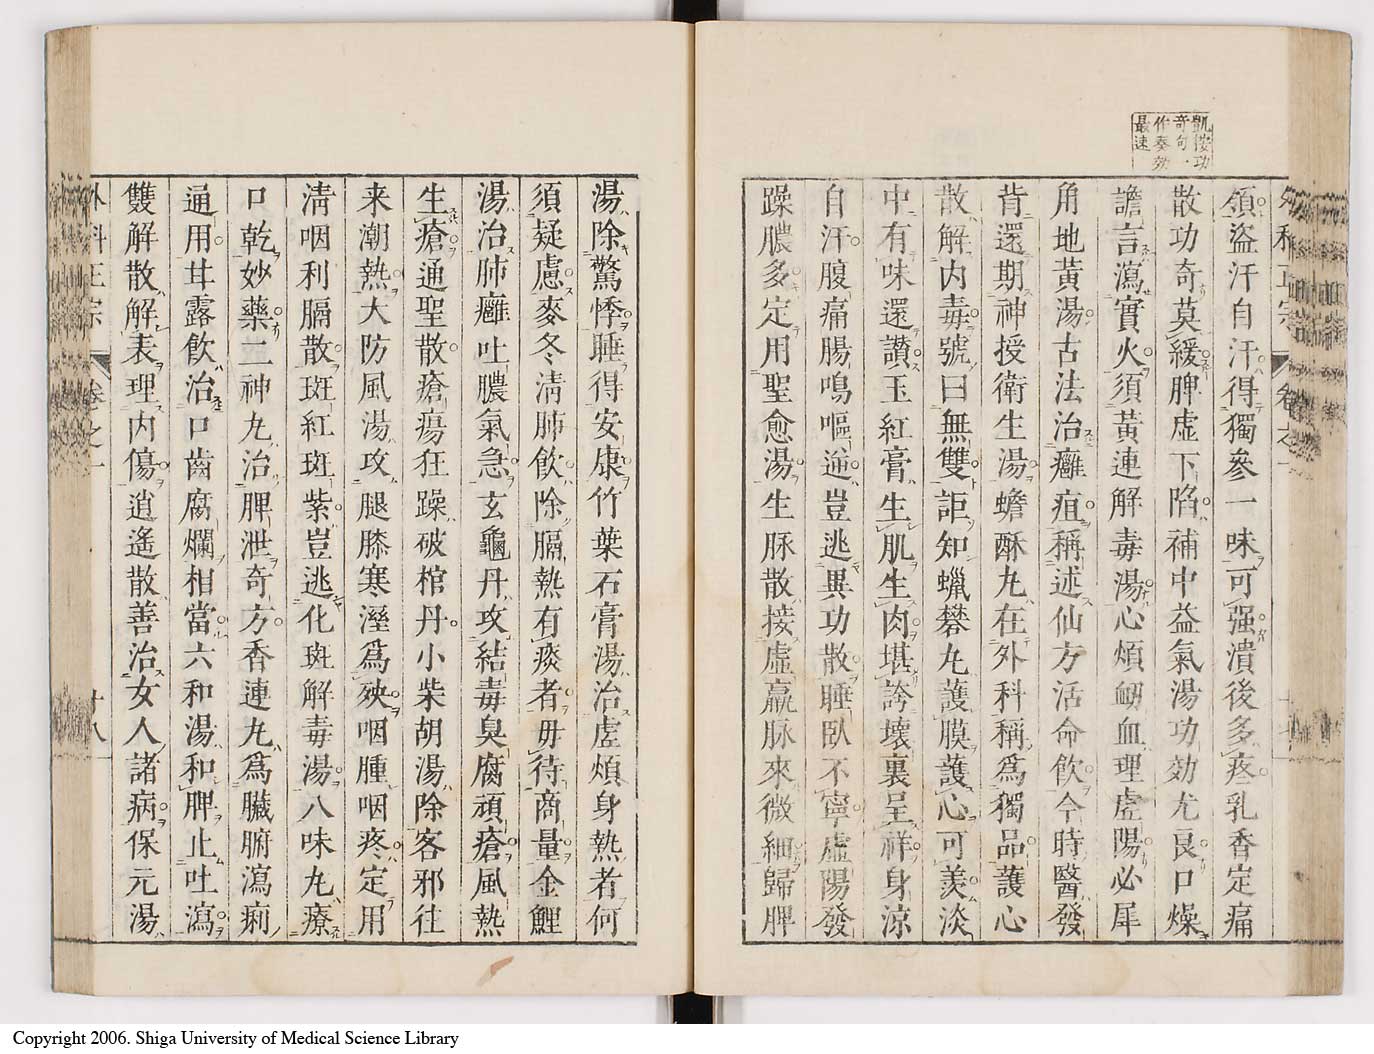 凱按功
奇句一
作奏効
最速
領盜汗自汗得獨參一味可强潰後多疼乳香定痛
散功奇莫緩脾虛下陷補中益氣湯功効尤良口燥
譫言瀉實火須黃連解毒湯心煩衂血理虛陽必犀
角地黃湯古法治癰疽稱述仙方活命飲今時醫發
背還期神授衛生湯蟾酥丸在外科稱爲獨品護心
散解内毒號曰無雙詎知蠟礬丸護膜護心可羨淡
中有味還讃玉紅膏生肌生肉堪誇壞裏呈祥身涼
自汗腹痛腸鳴嘔逆豈逃異功散睡臥不寧虛陽發
躁膿多定用聖愈湯生脉散接虛羸脉來微細歸脾
湯除驚悸睡得安康竹葉石膏湯治虛煩身熱者何
須疑慮麥冬淸肺飲除膈熱有痰者毋待商量金鯉
湯治肺癰吐膿氣急玄龜丹攻結毒臭腐頑瘡風熱
生瘡通聖散瘡瘍狂躁破棺丹小柴胡湯除客邪往
来潮熱大防風湯攻腿膝寒溼爲殃咽腫咽疼定用
淸咽利膈散斑紅斑紫豈逃化斑解毒湯八味丸療
口乾妙藥二神丸治脾泄奇方香連丸爲臟腑瀉痢
通用甘露飲治口齒腐爛相當六和湯和脾止吐瀉
雙解散解表理内傷逍遙散善治女人諸病保元湯
外科正宗 卷之一 廿八
Copyright 2006. Shiga University of Medical Science Library